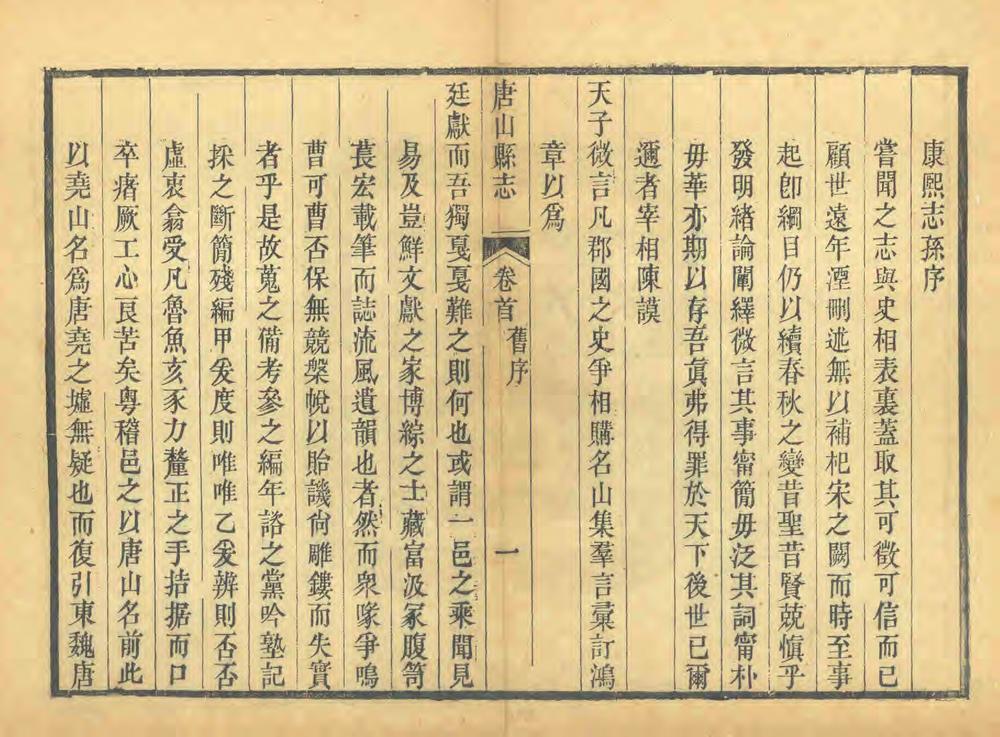 康熙志孫序
嘗聞之志與史相表裏蓋取其可徵可信而已
顧世遠年湮刪述無以補杞宋之闕而時至事
起卽綱目仍以續春秋之變昔聖昔賢兢慎乎
發明緒論闡繹微言其事甯簡毋泛其詞甯朴
毋華亦期以存吾眞弗得罪於天下後世已爾
邇者宰相陳謨
天子徵言凡郡國之史爭相購名山集羣言彚訂鴻
章以爲
唐山縣志 卷首 舊序 一
廷獻而吾獨戛戛難之則何也或謂一邑之乘聞見
易及豈鮮文獻之家博綜之士藏富汲冢腹笥
萇宏載筆而誌流風遺韻也者然而衆喙爭鳴
曹可曹否保無競槃帨以貽譏尙雕鏤而失實
者乎是故蒐之備考參之編年諮之黨吟塾記
採之斷簡殘編甲爰度則唯唯乙爰辨則否否
虛衷翕受凡魯魚亥豕力釐正之手拮据而口
卒瘏厥工心良苦矣粤稽邑之以唐山名前此
以堯山名爲唐堯之墟無疑也而復引東魏唐